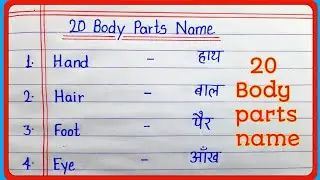 20 Body Parts Name
1. Hand - हाथ
2. Hair - बाल
3. Foot - पैर
4. Eye - आँख
20
Body
parts
name